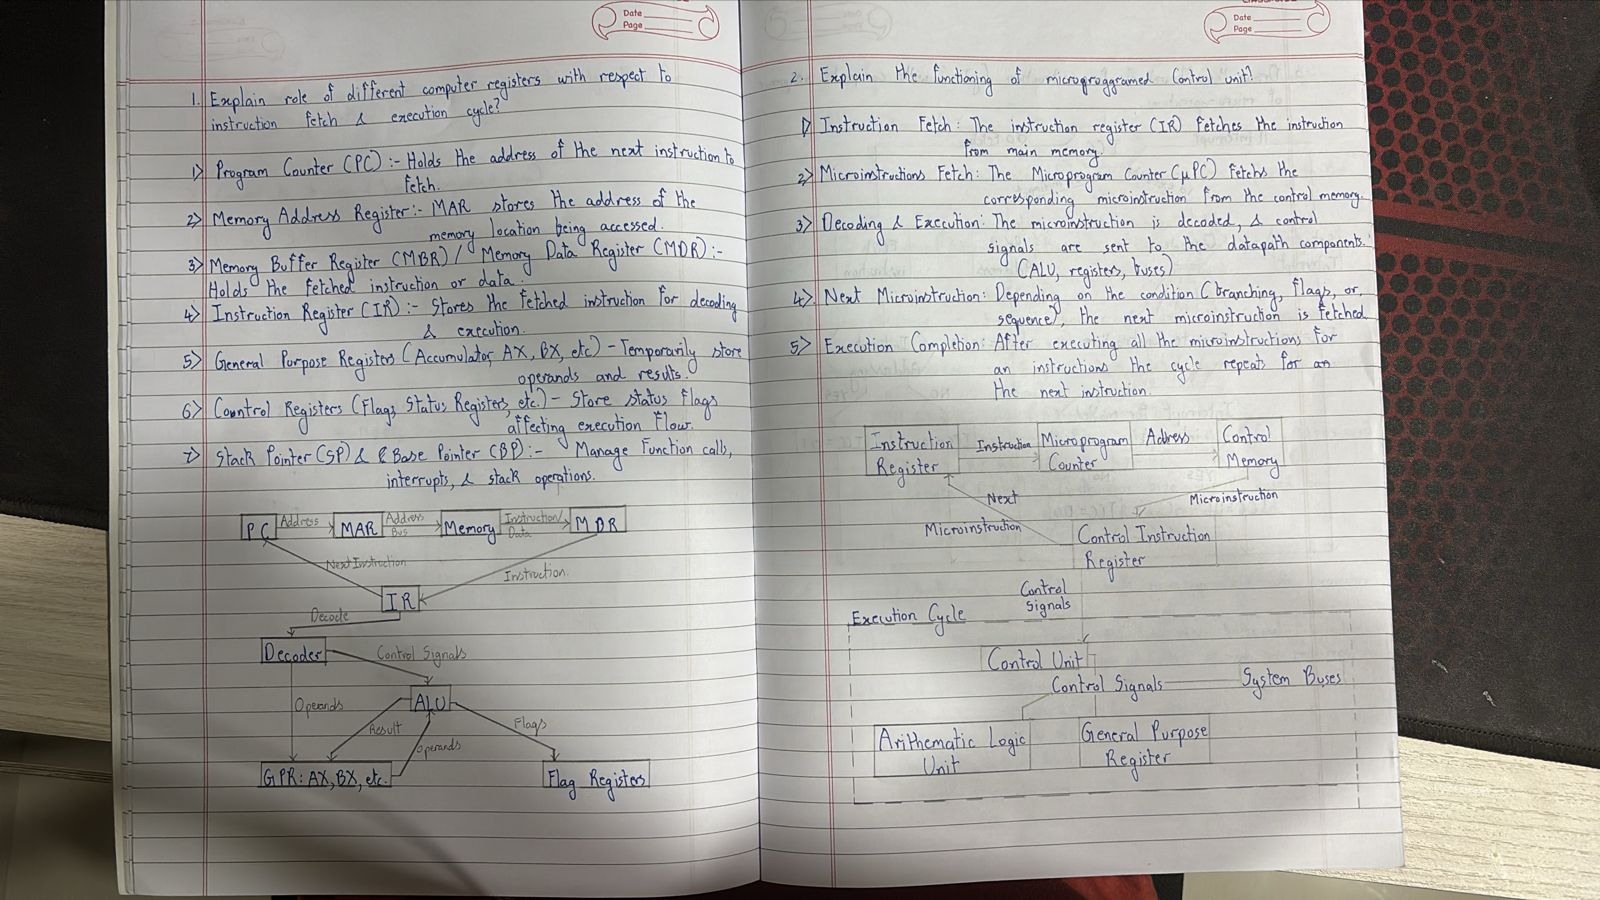 Date
Page
1. Explain role of different computer registers with respect to
instruction fetch & execution cycle?
1> Program Counter (PC) :- Holds the address of the next instruction to
fetch.
2> Memory Address Register :- MAR stores the address of the
memory location being accessed.
3> Memory Buffer Register (MBR) / Memory Data Register (MDR) :-
Holds the fetched instruction or data.
4> Instruction Register (IR) :- Stores the fetched instruction for decoding
& execution.
5> General Purpose Registers (Accumulator, AX, BX, etc) - Temporarily store
operands and results.
6> Control Registers (Flags, Status Registers, etc.) - Store status flags
affecting execution flow.
7> Stack Pointer (SP) & Base Pointer (BP) :- Manage Function calls,
interrupts, & stack operations.
PC Address MAR Address Bus Memory Instruction/ Data MDR
Next Instruction
Instruction
IR
Decode
Decoder
Control Signals
Operands
ALU
Result
Flags
Operands
GPR: AX, BX, etc.
Flag Registers
Date
Page
2. Explain the functioning of microproggramed Control unit?
1> Instruction Fetch : The instruction register (IR) fetches the instruction
from main memory.
2> Microinstructions Fetch : The Microprogram Counter (μPC) fetchs the
corresponding microinstruction from the control memory.
3> Decoding & Execution : The microinstruction is decoded, & control
signals are sent to the datapath components.
(ALU, registers, buses)
4> Next Microinstruction : Depending on the condition (branching, flags, or
sequence), the next microinstruction is fetched
5> Execution Completion : After executing all the microinstructions for
an instructions the cycle repeats for an
the next instruction.
Instruction Register Instruction Microprogram Counter Address Control Memory
Next
Microinstruction
Microinstruction
Control Instruction
Register
Control
Signals
Execution Cycle
Control Unit
Control Signals
System Buses
Arithematic Logic
Unit
General Purpose
Register